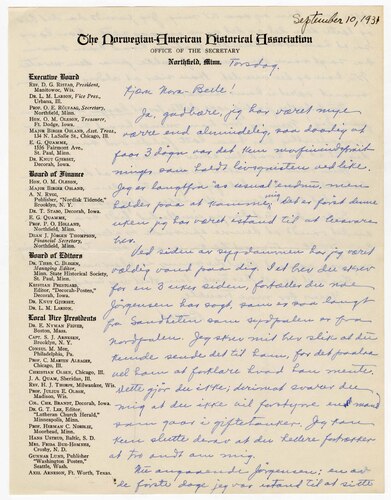 September 10, 1931
The Norwegian-American Historical Association
OFFICE OF THE SECRETARY
Northfield, Minn. Torsdag.
Executive Board
REV. D. G. RISTAD, President,
Manitowoc, Wis.
DR. L. M. LARSON, Vice Pres.,
Urbana, Ill.
PROF. O. E. RÖLVAAG, Secretary,
Northfield, Minn.
HON. O. M. OLESON, Treasurer,
Ft. Dodge, Iowa.
MAJOR BIRGER OSLAND, Asst. Treas.,
134 N. LaSalle St., Chicago, Ill.
E. G. QUAMME,
1595 Vincent Ave.,
St. Paul, Minn.
DR. KNUT GJERSET,
Decorah, Iowa.
Board of Finance
HON. O. M. OLESON,
MAJOR BIRGER OSLAND,
A. N. RYGG,
Publisher, "Nordisk Tidende,"
Brooklyn, N. Y.
DR. T. STABO, Decorah, Iowa.
E. G. QUAMME,
PROF. P. O. HOLLAND,
Northfield, Minn.
DEAN J. JÖRGEN THOMPSON,
Financial Secretary,
Northfield, Minn.
Board of Editors
DR. THEO. C. BLEGEN,
Managing Editor,
Minn. State Historical Society,
St. Paul, Minn.
KRISTIAN PRESTGARD,
Editor, "Decorah-Posten,"
Decorah, Iowa.
DR. KNUT GJERSET,
DR. L. M. LARSON,
Local Vice Presidents
DR. E. NYMAN FIGVED,
Boston, Mass.
CAPT. S. J. ARNESEN,
Brooklyn, N. Y.
CONSUL M. MOE,
Philadelphia, Pa.
PROF. C. MARTIN ALSAGER,
Chicago, Ill.
CHRISTIAN OLSEN, Chicago, Ill.
J. A. QUAM, Sheridan, Ill.
REV. H. J. THORPE, Milwaukee, Wis.
PROF. JULIUS E. OLSON,
Madison, Wis.
COL. CHR. BRANDT, Decorah, Iowa.
DR. G. T. LEE, Editor,
"Lutheran Church Herald,"
Minneapolis, Minn.
PROF. HERMAN C. NORDLIE,
Moorhead, Minn.
HANS USTRUD, Baltic, S. D.
MRS. FRIDA BUE-HOMNES,
Crosby, N. D.
GUNNAR LUND, Publisher
"Washington Posten,"
Seattle, Wash.
AXEL ARNESON, Ft. Worth, Texas.
Kjære Nora-Belle!
Ja, gudbære, jeg har været mye
værre end almindelig, saa daarlig at
for 3 dager var det kun
som holdt livsgnisten ved like.
Jeg er langtfra "as usual" endnu, men
holder paa at komme mig; det er første denne
uken jeg har været istand til at besvare
brev.
Ved siden av sygdommen har jeg været
vred paa dig. I et brev du skrev
for en 3 uker siden, fortæller du noe
Jörgensen har sagt, som er saa langt
fra Sandheten som sydpolen er fra
nordpolen. Jeg skrev mit brev slik at du
kunde sende det til ham, for det paalaa
vel ham at forklare hvad han mente.
Dette gjør du ikke; derimot svarer du
mig at du ikke vil forstyrre en mand
som gaar i giftetanker. Jeg kan
kun slutte derav at du heller foretrækker
at tro ondt om mig.
Nu angaaende Jörgensen: en av
de første dage jeg var istand til at sitte